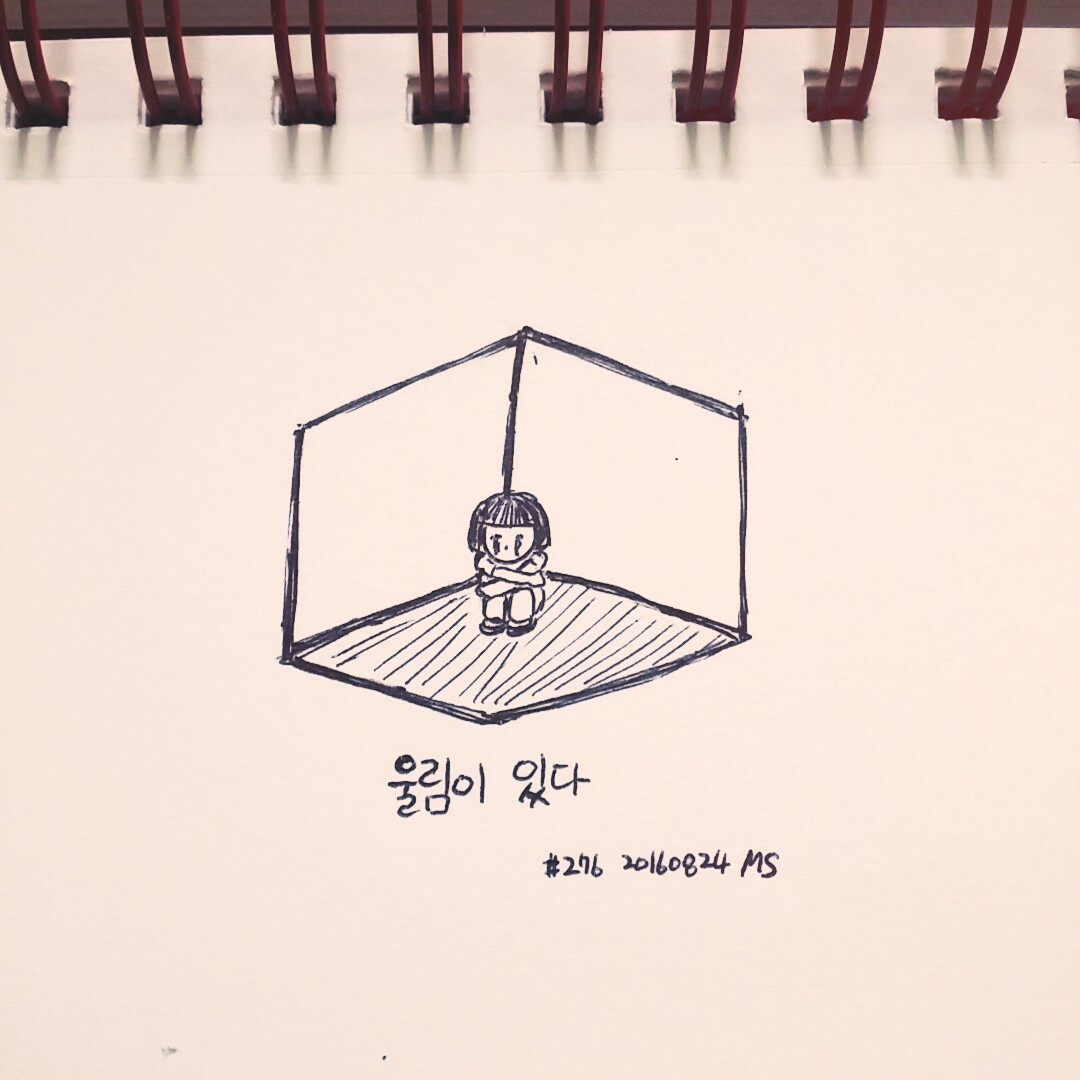 울림이 있다
#276 20160824 MS